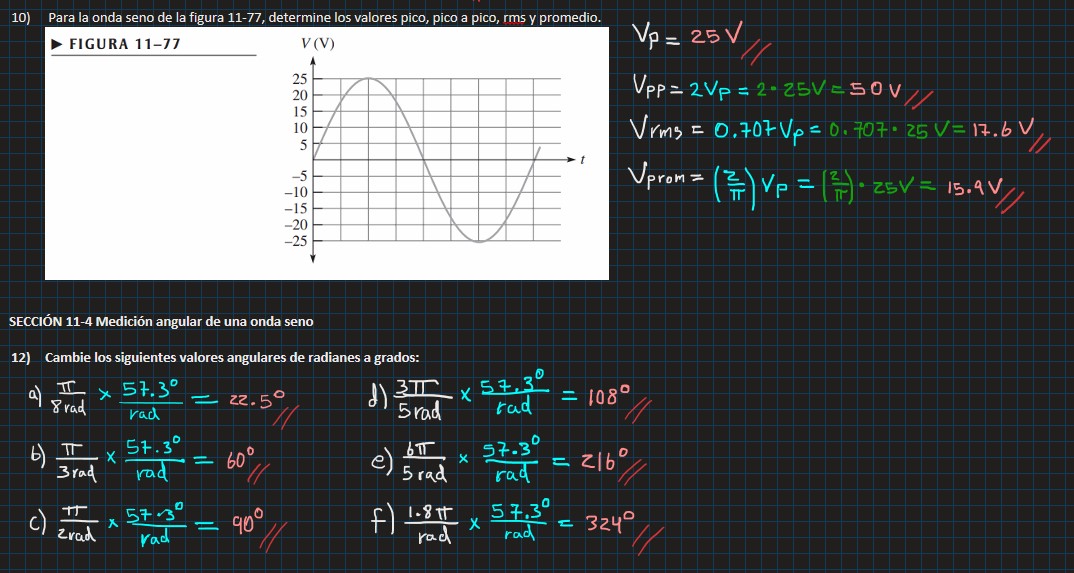 10) Para la onda seno de la figura 11-77, determine los valores pico, pico a pico, rms y promedio.
▶ FIGURA 11–77
V (V)
25
20
15
10
5
t
–5
–10
–15
–20
–25
Vp = 25 V
VPP = 2Vp = 2 · 25V = 50 V
Vrms = 0.707 Vp = 0.707 · 25 V = 17.6 V
Vprom = (2/π) Vp = (2/π) · 25V = 15.9 V
SECCIÓN 11-4 Medición angular de una onda seno
12) Cambie los siguientes valores angulares de radianes a grados:
a) π/8 rad × 57.3°/rad = 22.5°
b) π/3 rad × 57.3°/rad = 60°
c) π/2 rad × 57.3°/rad = 90°
d) 3π/5 rad × 57.3°/rad = 108°
e) 6π/5 rad × 57.3°/rad = 216°
f) 1.8π/rad × 57.3°/rad = 324°